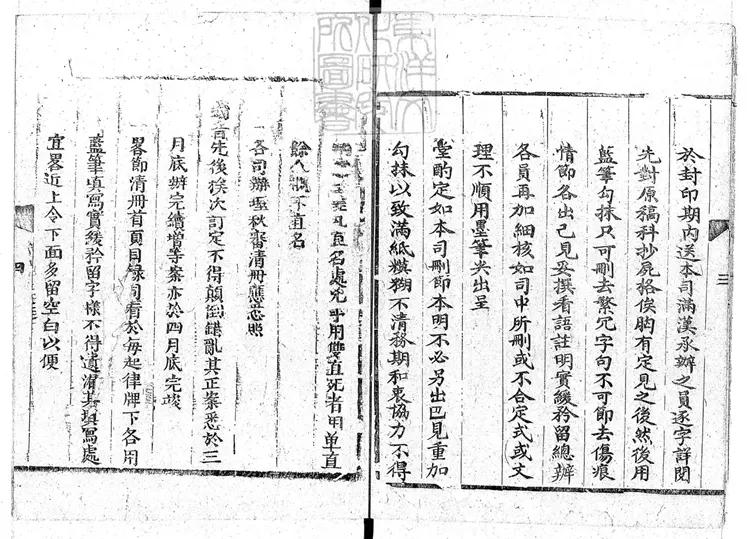 於封印期內送本司滿漢承辦之員逐字詳閱
先對原稿科抄屍格俟胸有定見之後然後用
藍筆勾抹只可刪去繁冗字句不可節去傷痕
情節各出己見妥撰看語註明實緩矜留總辦
各員再加細核如司中所刪或不合定式或文
理不順用墨筆夾出呈
堂酌定如本司刪節本明不必另出己見重加
勾抹以致滿紙糢糊不清務期和衷協力不得
三
凡直名處兇手用雙直死者用单直
餘人概不直名
一各司辦理秋審清冊應悉照
省先後挨次訂定不得顛倒錯亂其正案悉於三
月底辦完續增等案亦於四月底完竣
一畧節清冊首頁目錄司看於每起律牌下各用
藍筆填寫實緩矜留字樣不得遺漏其填寫處
宜畧近上令下面多留空白以便
四